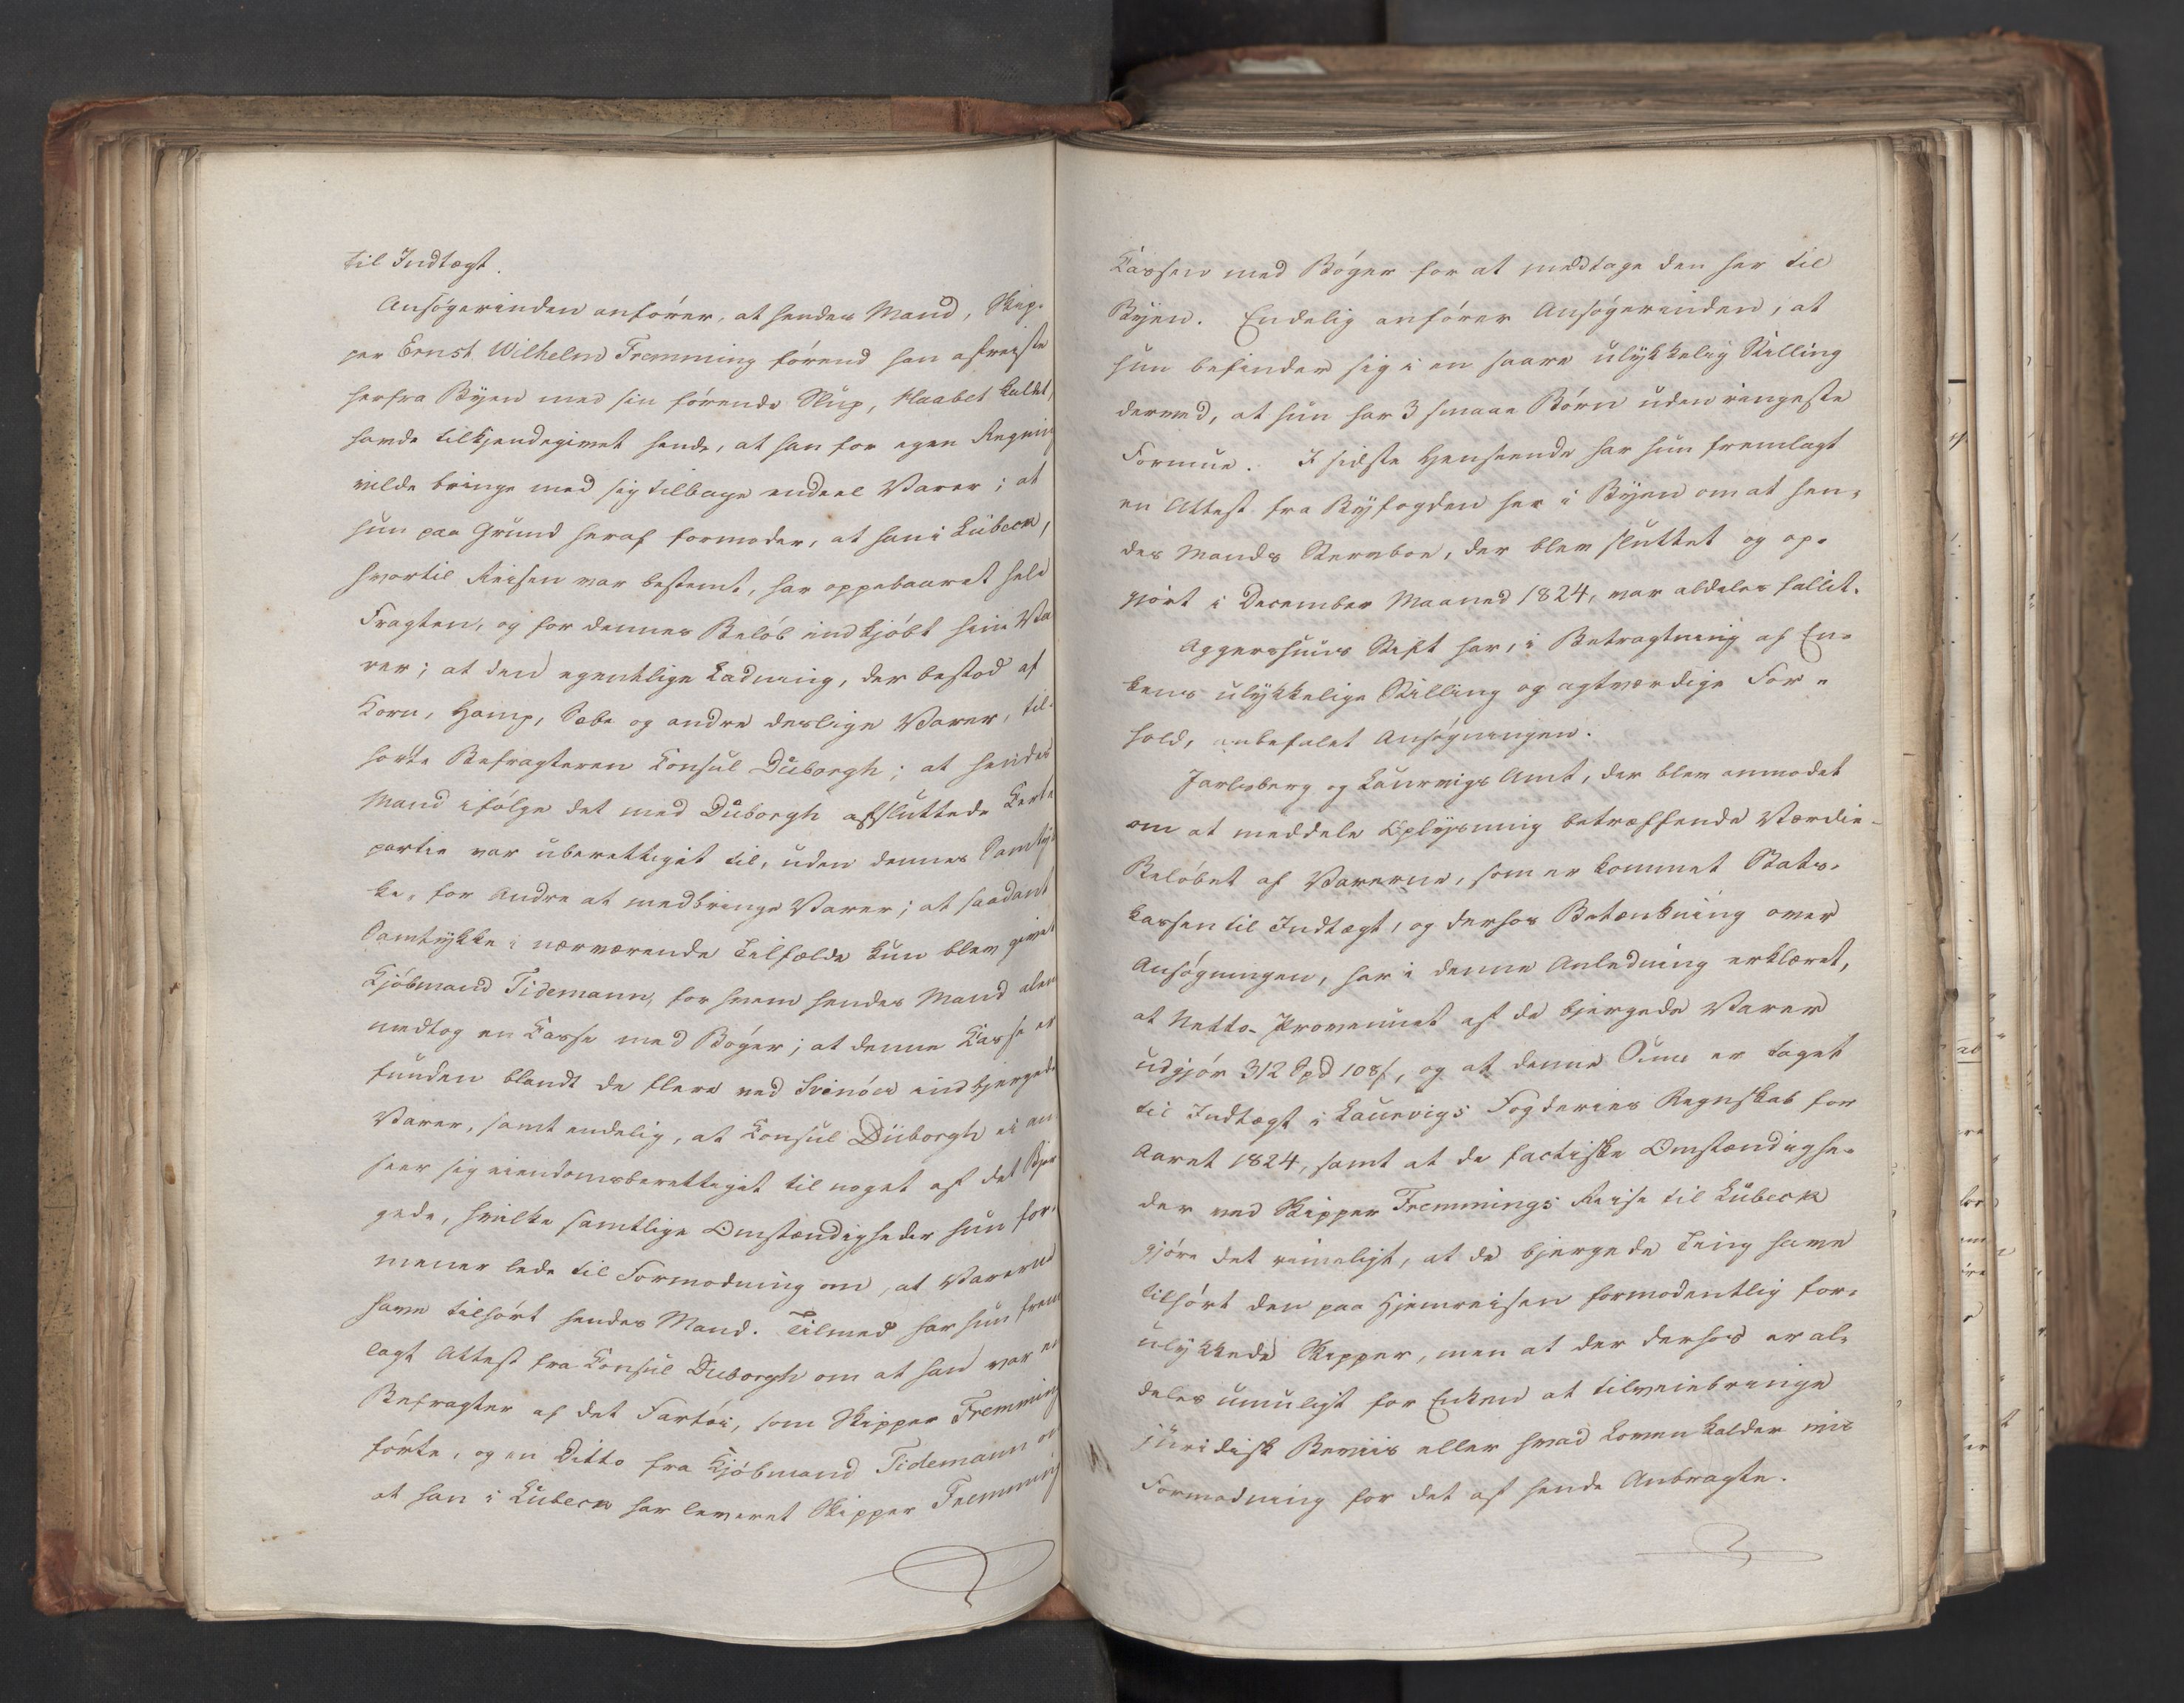 til Indtægt.
Ansøgerinden anfører, at hendes Mand, Skip-
per Ernst Wilhelm Fremming førend han afreiste
herfra Byen med sin førende Slup, Haabet kaldet,
havde tilkjendegivet hende, at han for egen Regning
vilde bringe med sig tilbage endeel Varer; at
hun paa Grund heraf formoder, at han i Lübeck,
hvortil Reisen var bestemt, har oppebaaret hele
Fragten, og for dennes Beløb indkjøbt sine Va
rer; at den egentlige Ladning, der bestod af
Korn, Hamp, Sæbe og andre deslige Varer, til-
hørte Befragteren Konsul Düborgh; at hendes
Mand ifølge det med Düborgh afsluttede Certe
partie var uberettiget til, uden dennes Samtyk
ke, for Andre at medbringe Varer; at saadant
Samtykke i nærværende Tilfælde kun blev givet
Kjøbmand Tidemann, for hvem hendes Mand alene
medtog en Kasse med Bøger; at denne Kasse er
funden blandt de flere ved Svinöer indbjergede
Varer, samt endelig, at Konsul Düborgh ei an
seer sig eiendomsberettiget til noget af det Bjer
gede, hvilke samtlige Omstændigheder hun for-
mener lede til Formodning om, at Varerne
have tilhørt hendes Mand. Tilmed har hun frem
lagt Attest fra Konsul Düborgh om at han var en
Befragter af det Fartøi, som Skipper Fremming
førte, og en Ditto fra Kjøbmand Tidemann om
at han i Lübeck har leveret Skipper Fremming
Kassen med Bøger for at medtage den her til
Byen. Endelig anfører Ansøgerinden, at
hun befinder sig i en saare ulykkelig Stilling
derved, at hun har 3 smaae Børn uden ringeste
Formue. I sidste Henseende har hun fremlagt
en Attest fra Byfogden her i Byen om at hen-
des Mands Stervboe, der blev sluttet og op-
gjort i December Maaned 1824, var aldeles fallit.
Aggershuus Stift har, i Betragtning af En-
kens ulykkelige Stilling og agtværdige For-
hold, anbefalet Ansøgningen.
Jarlsberg og Laurvigs Amt, der blev anmodet
om at meddele Oplysning betræffende Værdie-
Beløbet af Varerne, som er kommet Stats-
kassen til Indtægt, og derhos Betænkning over
Ansøgningen, har i denne Anledning erklæret,
at Netto-Provenuet af de bjergede Varer
udgjør 312 Spd 108 ß, og at denne Sum er taget
til Indtægt i Laurvigs Fogderies Regnskab for
Aaret 1824, samt at de factiske Omstændighe-
der ved Skipper Fremmings Reise til Lübeck
gjøre det rimeligt, at de bjergede Ting have
tilhørt den paa Hjemreisen formodentlig for-
ulykkede Skipper, men at der derhos er al-
deles umuligt for Enken at tilveiebringe
juridisk Beviis eller hvad Loven kalder vis
Formodning for det af hende Anbragte.